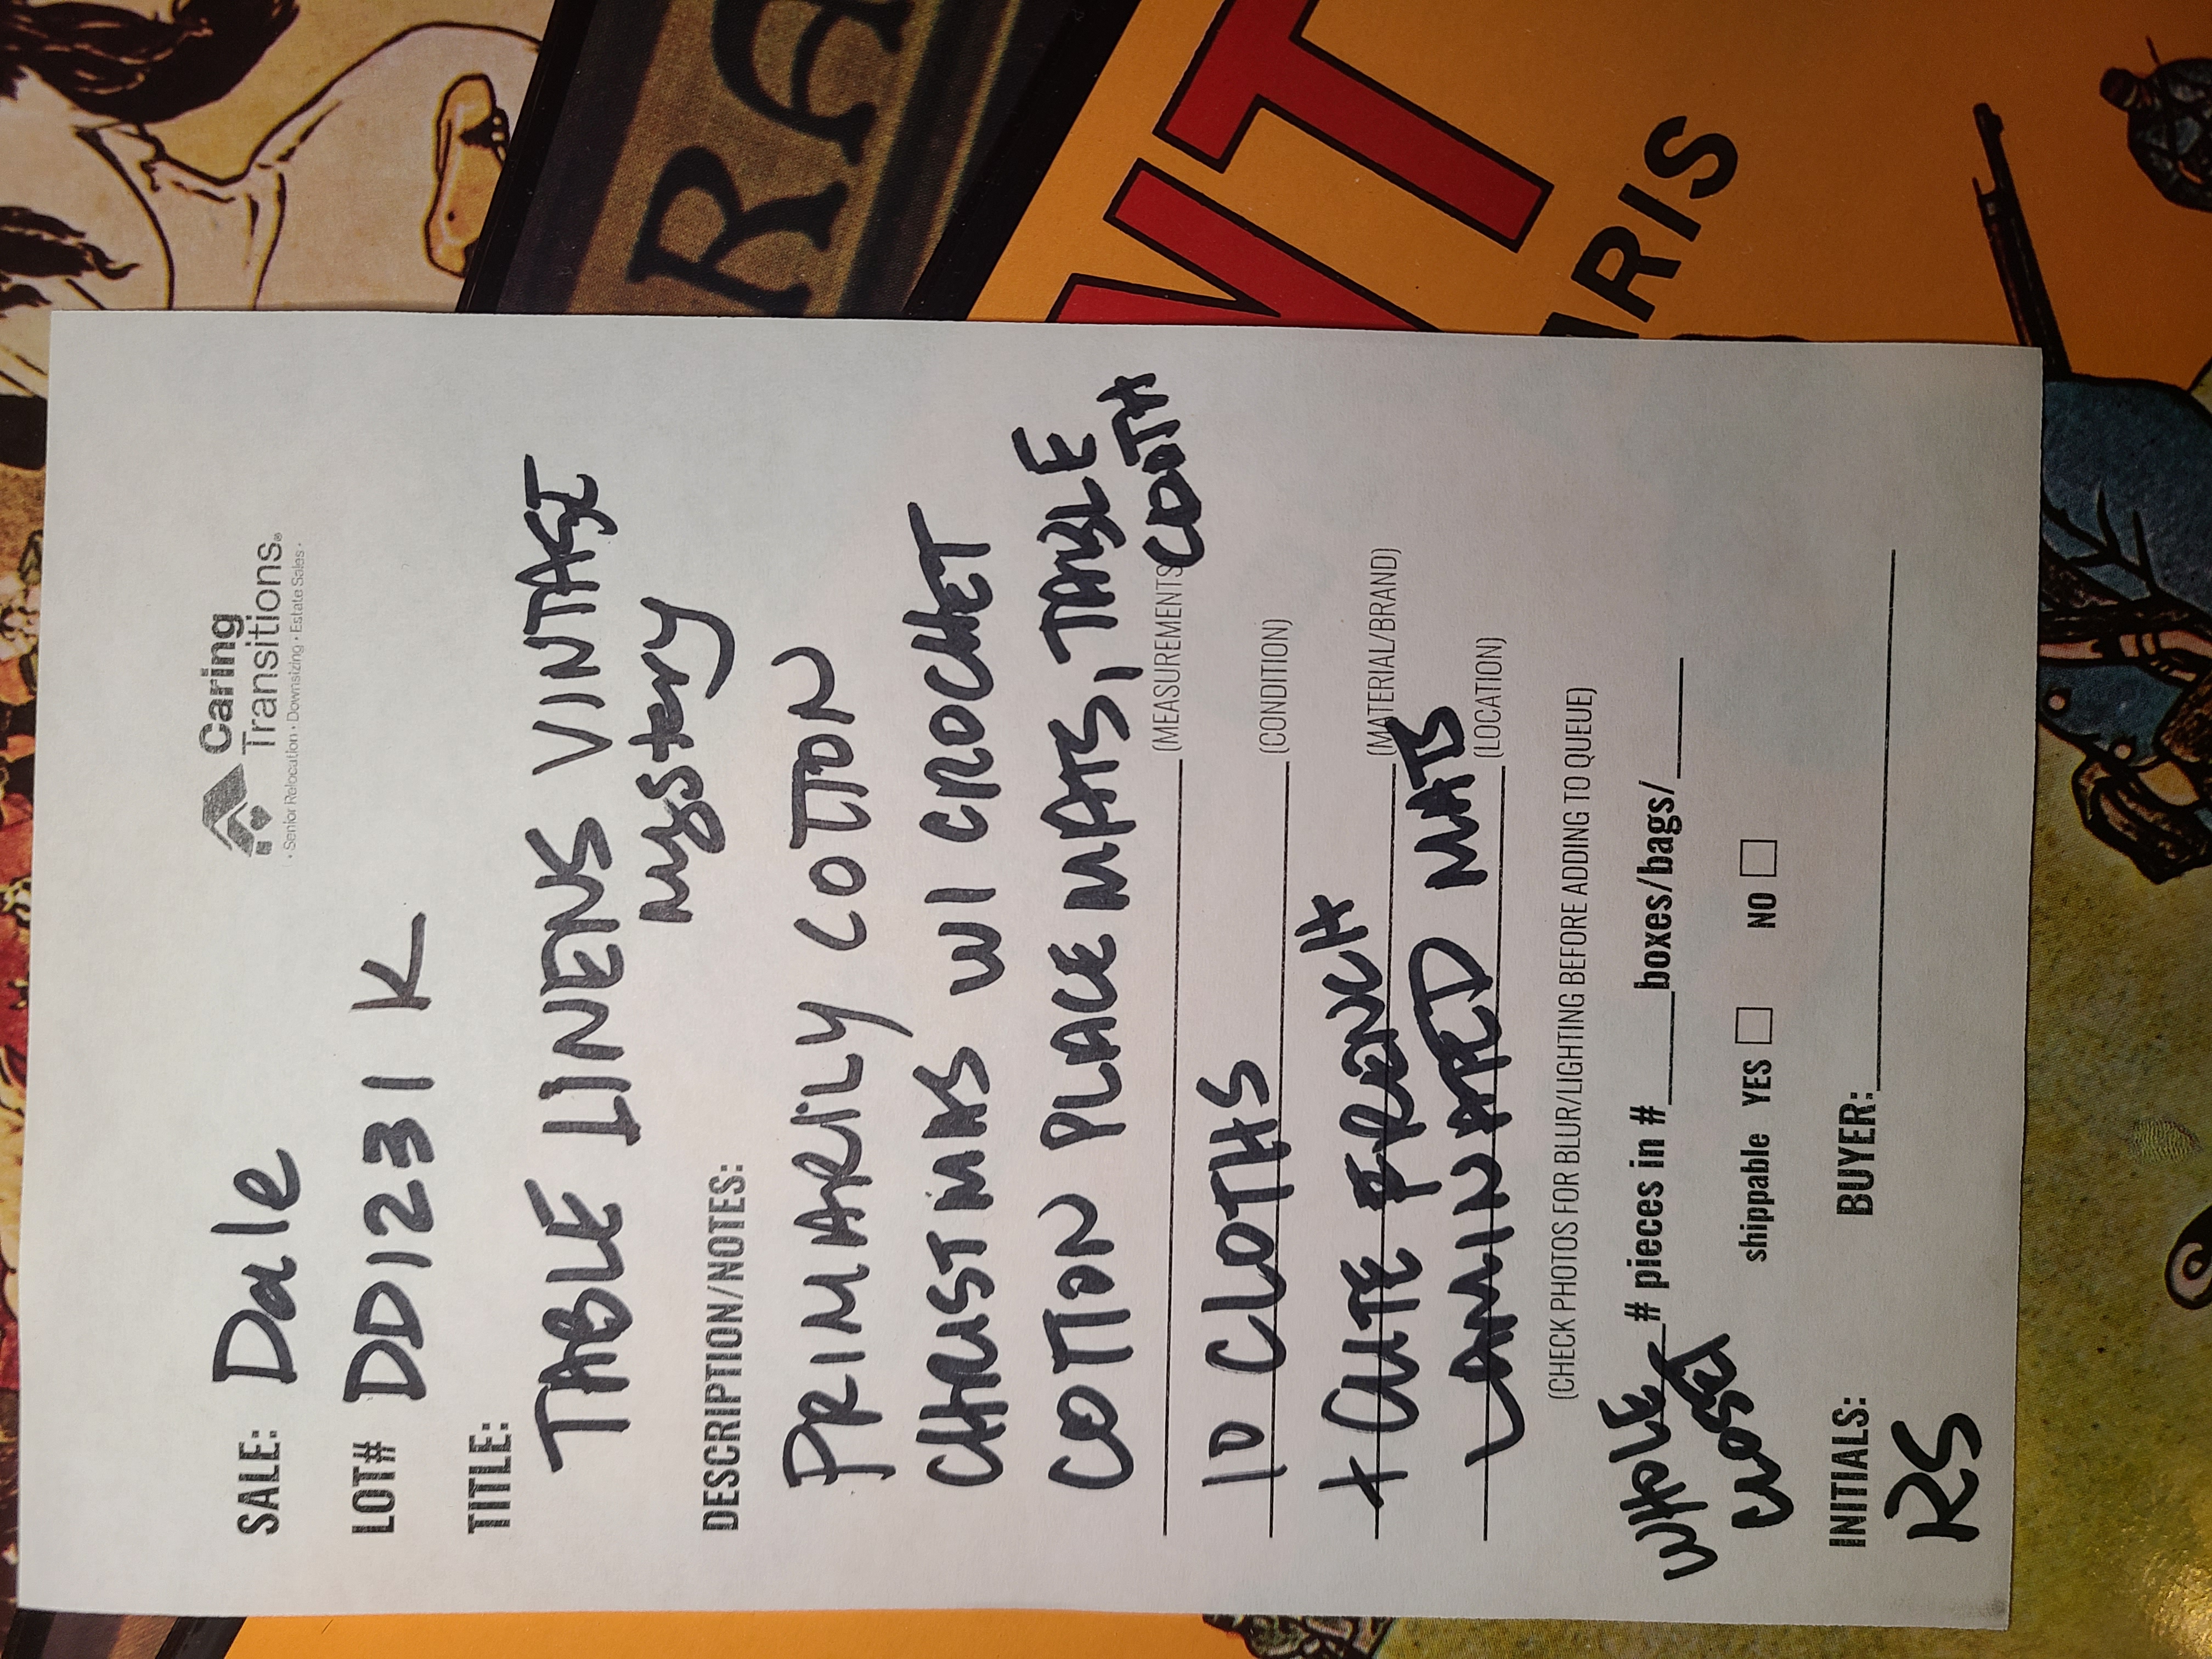 Caring
Transitions®
• Senior Relocation • Downsizing • Estate Sales •
SALE: Dale
LOT# DD1231 K
TITLE:
TABLE LINENS VINTAGE
Mystery
DESCRIPTION/NOTES:
PRIMARILY COTTON
CHRISTMAS W/ CROCHET
COTTON PLACE MATS, TABLE
CLOTH
(MEASUREMENTS
10 CLOTHS
(CONDITION)
+ CUTE FRENCH
(MATERIAL/BRAND)
LAMINATED MATS
(LOCATION)
(CHECK PHOTOS FOR BLUR/LIGHTING BEFORE ADDING TO QUEUE)
WHOLE
CLOSET
# pieces in # boxes/bags/
shippable YES NO
INITIALS: BUYER:
RS
RA
NT
ARIS